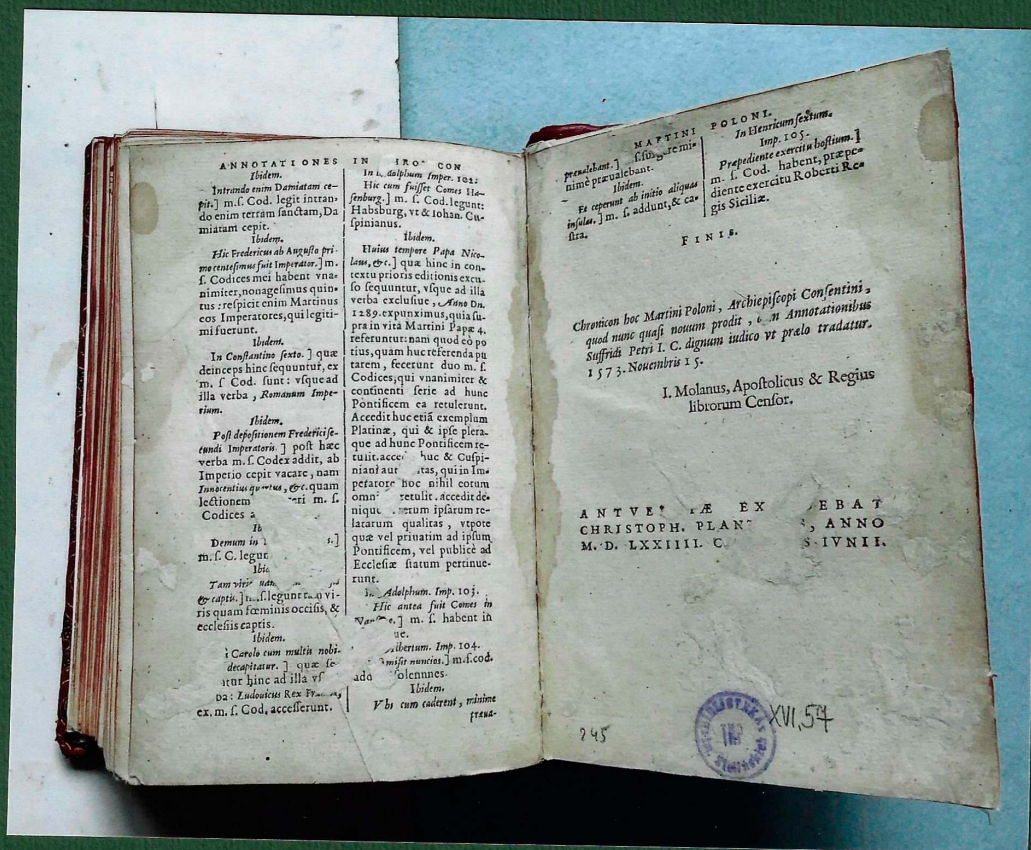 ANNOTATIONES IN CON
Ibidem.
Intrando enim Damiatam ce-
pit.] m. ſ. Cod. legit intran-
do enim terram ſanctam, Da
miatam cepit.
Ibidem.
Hic Fredericus ab Auguſto pri-
mo centeſimus fuit Imperator.] m.
ſ. Codices mei habent vna-
nimiter, nonageſimus quin-
tus: reſpicit enim Martinus
eos Imperatores, qui legiti-
mi fuerunt.
Ibidem.
In Conſtantino ſexto. ] quæ
deinceps hinc ſequuntur, ex
m. ſ Cod. ſunt: vſque ad
illa verba, Romanum Impe-
rium.
Ibidem.
Poſt depoſitionem Frederici ſe-
cundi Imperatoris. ] poſt hæc
verba m. ſ. Codex addit, ab
Imperio cepit vacare, nam
Innocentius quartus, &c. quam
lectionem m. ſ.
Codices
Demum in .]
m. ſ. C. legunt
Tam viris
& captis.] m. ſ. legunt tam vi-
ris quam fœminis occiſis, &
eccleſiis captis.
Ibidem.
Carolo cum multis nobi.
decapitatur. ] quæ ſe
hinc ad illa vſ
Ludouicus Rex
ex. m. ſ. Cod, acceſſerunt.
In dolphum Imper. 102:
Hic cum fuiſſet Comes Ha-
ſenburg.] m. ſ. Cod. legunt:
Habsburg, vt & Iohan. Cu-
ſpinianus.
Ibidem.
Huius tempore Papa Nico-
laus, &c.] quæ hinc in con-
textu prioris editionis excu-
ſo ſequuntur, vſque ad illa
verba excluſiue, Anno Dn.
1289. expunximus, quia ſu-
pra in vita Martini Papæ 4.
referuntur: nam quod eò po
tius, quam huc referenda pu
tarem, fecerunt duo m. ſ.
Codices, qui vnanimiter &
continenti ſerie ad hunc
Pontificem ea retulerunt.
Accedit huc etiã exemplum
Platinæ, qui & ipſe plera-
que ad hunc Pontificem re-
tulit. acce huc & Cuſpi-
niani aut itas, qui in Im-
peratore hoc nihil eorum
omni retulit. accedit de-
nique rerum ipſarum re-
latarum qualitas, vtpote
quæ vel priuatim ad ipſum
Pontificem, vel publicè ad
Eccleſiæ ſtatum pertinue-
runt.
In Adolphum. Imp. 103.
Hic antea fuit Comes in
] m. ſ. habent in
lbertum. Imp. 104.
miſit nuncios.] m. ſ. cod.
ado ſolennes.
Ibidem.
Vbi cum caderent, minime
præua-
MARTINI POLONI.
præualebant.] ſ. ſurgere mi-
nimè præualebant.
Ibidem.
Et ceperunt ab initio aliquas
inſulas.] m. ſ. addunt, & ca-
ſtra.
In Henricum ſextum.
Imp. 105.
Præpediente exercitu hoſtium.]
m. ſ. Cod. habent, præpe-
diente exercitu Roberti Re-
gis Siciliæ.
FINIS.
Chronicon hoc Martini Poloni, Archiepiſcopi Conſentini,
quod nunc quaſi nouum prodit, Annotationibus
Suffridi Petri I. C. dignum iudico vt prælo tradatur.
1573. Nouembris 15.
I. Molanus, Apoſtolicus & Regius
librorum Cenſor.
ANTVE IÆ EX EBAT
CHRISTOPH. PLANT , ANNO
M. D. LXXIIII. C S IVNII.
XVI,57
245